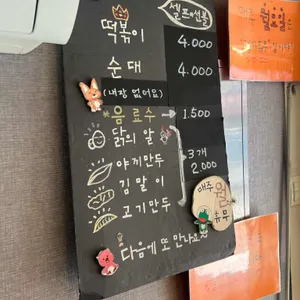 셀프&선불
떡볶이 4.000
순대 4.000
(내장 없어요)
*음료수 → 1.500
닭의 알
야끼만두
김말이
고기만두
3개
2.000
매주
월
휴무
다음에 또 만나요~